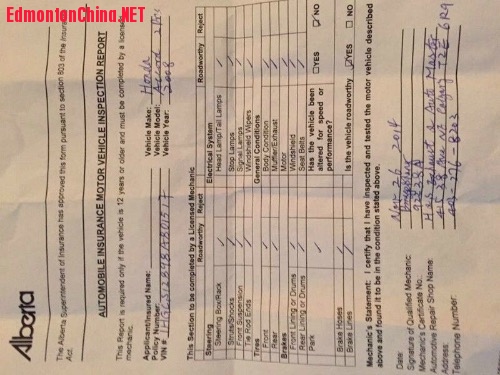 EdmontonChina.NET
Alberta
The Alberta Superintendent of Insurance has approved this form pursuant to section 803 of the Insurance
Act.
AUTOMOBILE INSURANCE MOTOR VEHICLE INSPECTION REPORT
This Report is required only if the vehicle is 12 years or older and must be completed by a licensed
mechanic.
Applicant/Insured Name: Vehicle Make: Honda
Policy Number: Vehicle Model: Accord
VIN # Vehicle Year: 2008
This Section to be completed by a Licensed Mechanic
Roadworthy Reject Roadworthy Reject
Steering Electrical System
Steering Box/Rack Head Lamp/Tail Lamps
Struts/Shocks Stop Lamps
Front Suspension Signal Lamps
Tie Rod Ends Windshield Wipers
Tires General Conditions
Front Body Condition
Rear Muffler/Exhaust
Brakes Motor
Front Lining or Drums Windshield
Rear Lining or Drums Seat Belts
Park Has the vehicle been altered for speed or performance? YES NO
Brake Hoses
Brake Lines Is the vehicle roadworthy YES NO
Mechanic's Statement: I certify that I have inspected and tested the motor vehicle described
above and found it to be in the condition stated above.
Date: Nov 26 2014
Signature of Qualified Mechanic:
Mechanic's Certificate No.
Automotive Repair Shop Name: Exhaust & Auto
Address: Calgary T2E 6R9
Telephone Number: